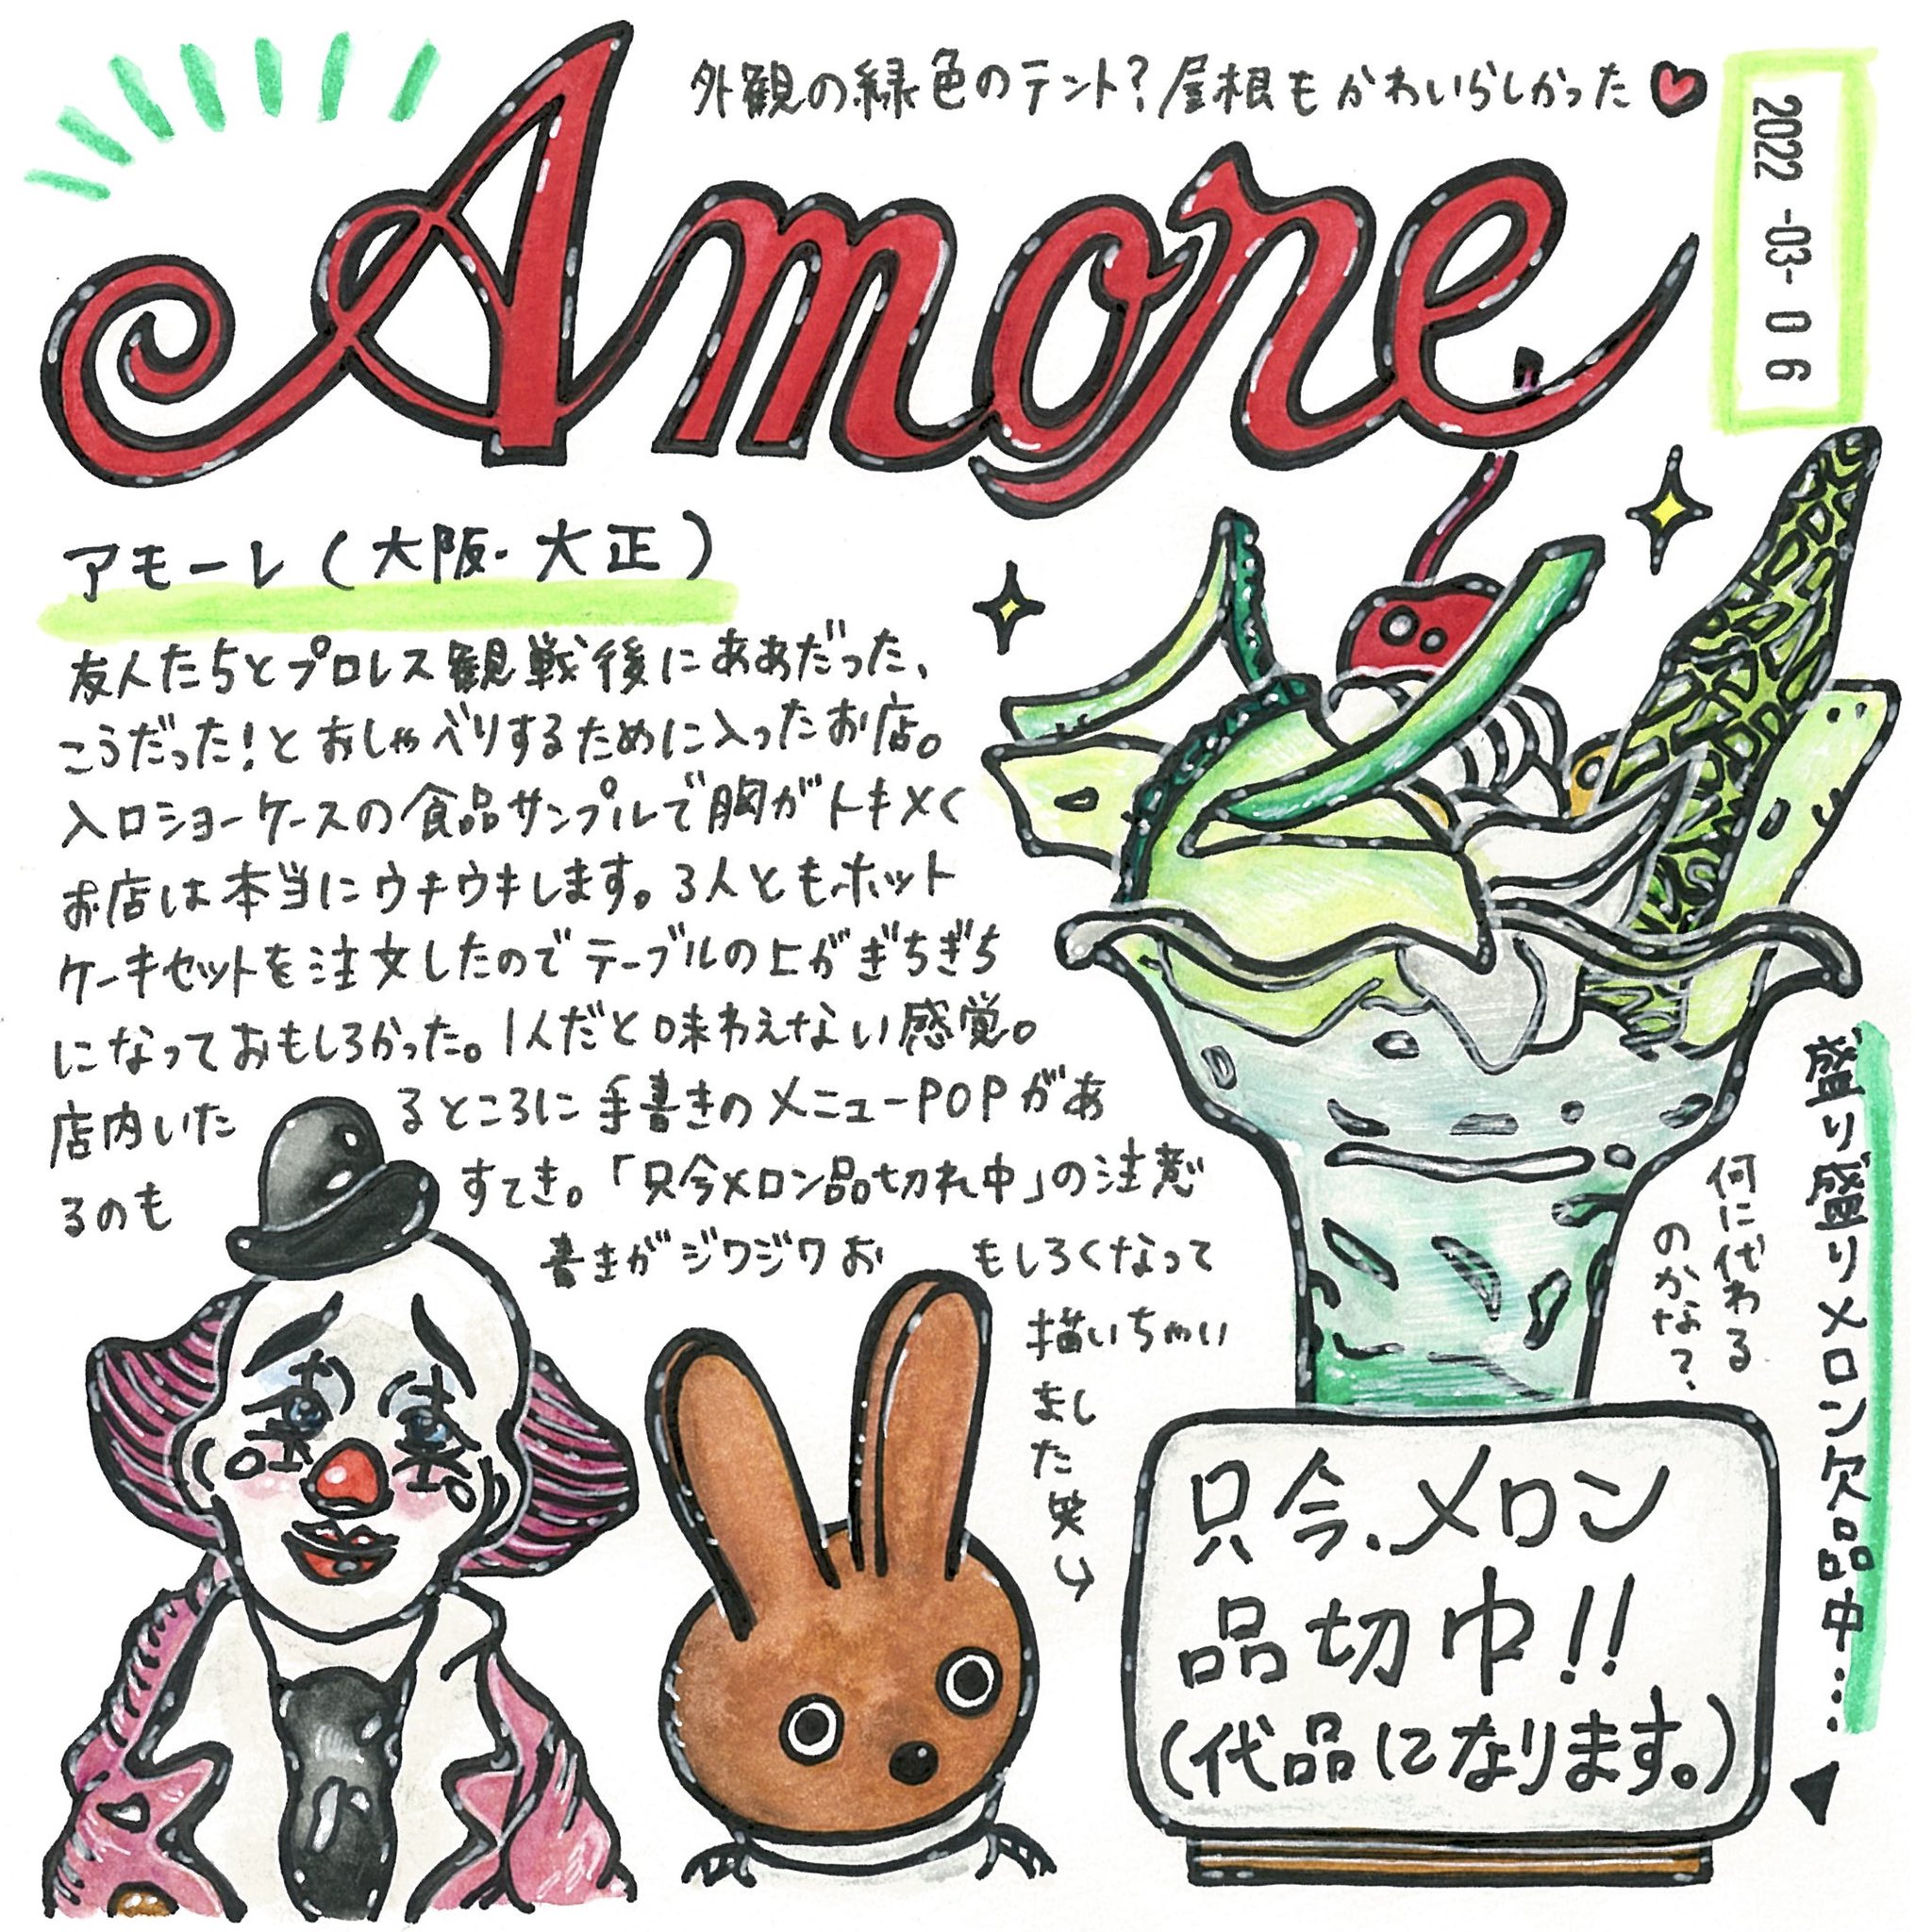 外観の緑色のテント?屋根もかわいらしかった
2022 -03- 06
Amore
アモーレ(大阪・大正)
友人たちとプロレス観戦後にああだった、
こうだった!とおしゃべりするために入ったお店。
入口ショーケースの食品サンプルで胸がトキメく
お店は本当にウキウキします。3人ともホット
ケーキセットを注文したのでテーブルの上がぎちぎち
になっておもしろかった。1人だと味わえない感覚。
店内いた るところに手書きのメニューPOPがあ
るのも すてき。「只今メロン品切れ中」の注意
書きがジワジワお もしろくなって
描いちゃい
まし
た笑
盛り盛りメロン欠品中…
何に代わる
のかな?
只今、メロン
品切中!!
(代品になります。)